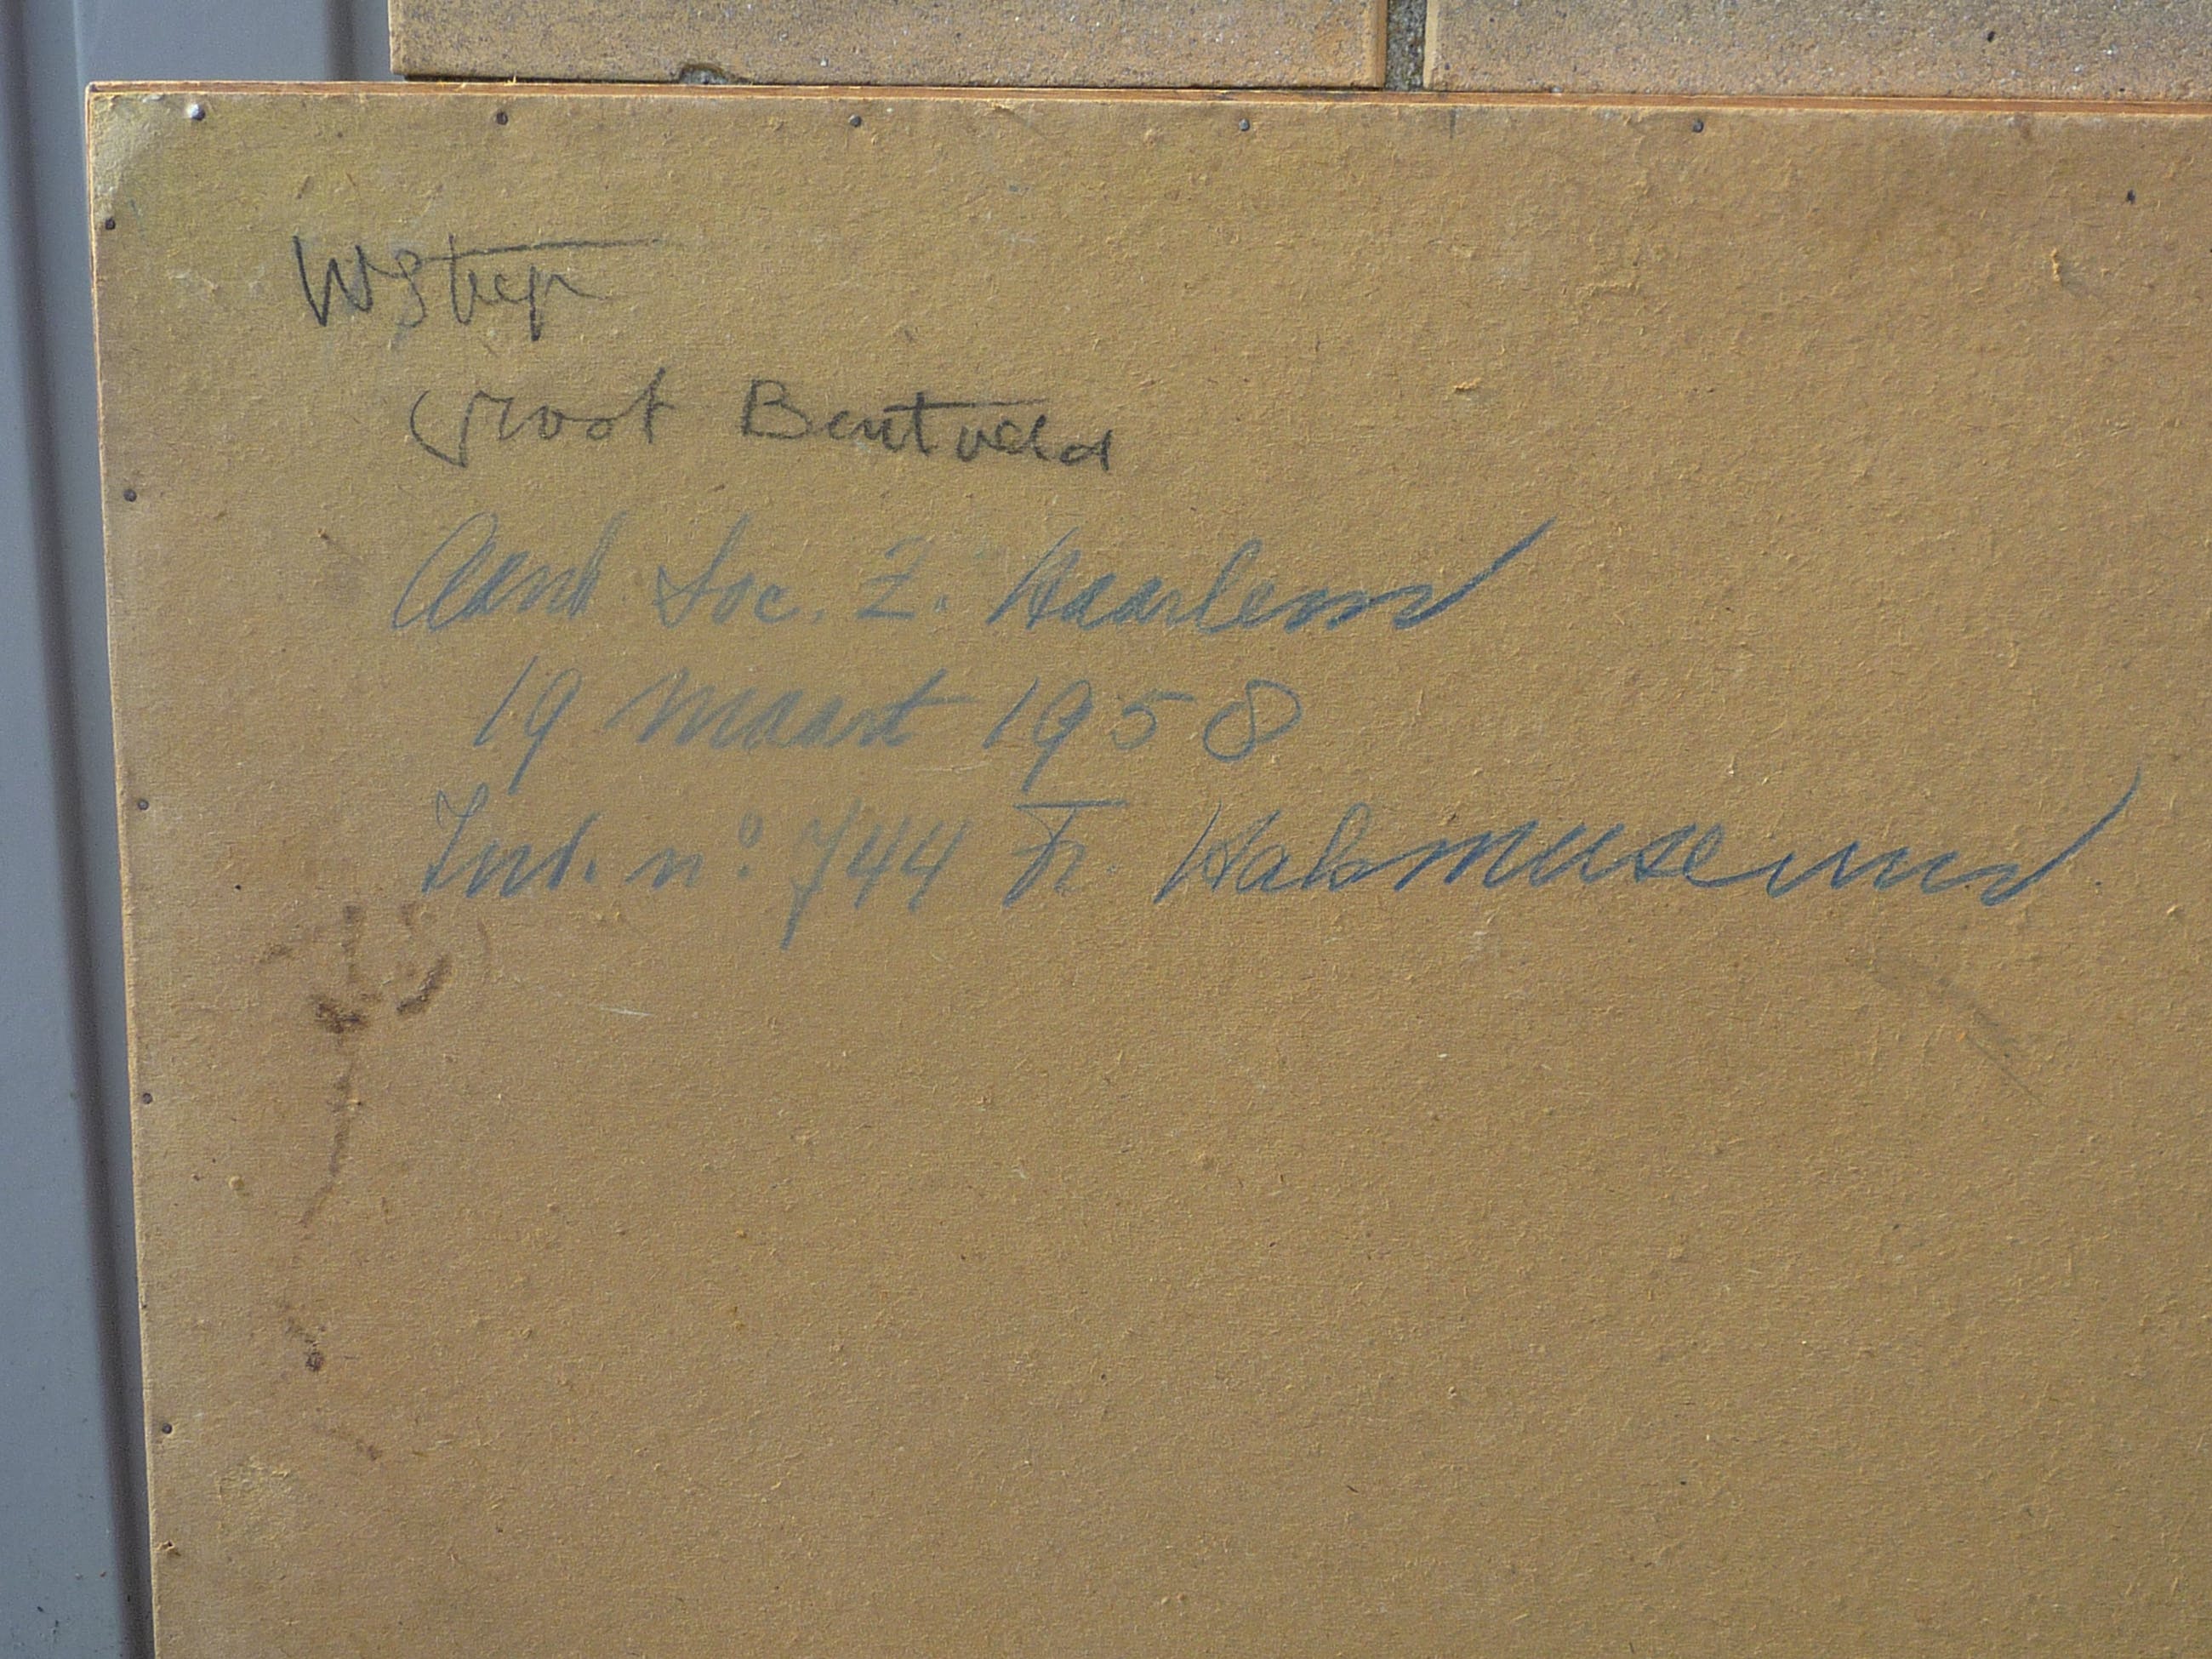 W Strep
Groot Bentveld
Aank Soc. Z. Haarlem
19 Maart 1958
Inv. nº. 744 Fr. Halsmuseum